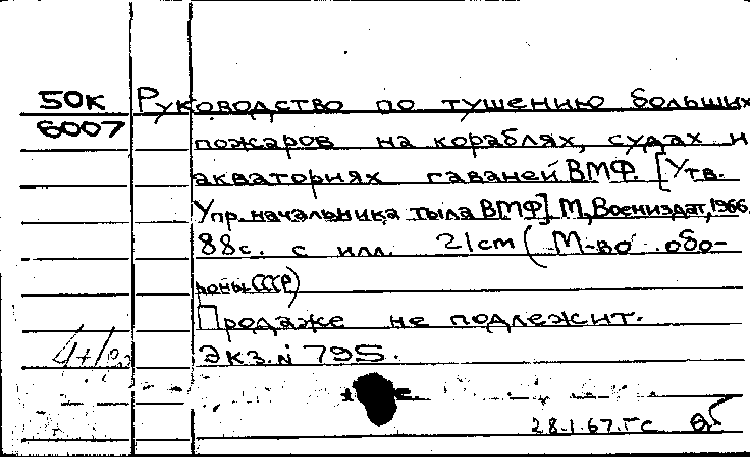 50к Руководство по тушению больших
6007 пожаров на кораблях, судах и
акваториях гаваней ВМФ. [Утв.
Упр. начальника тыла ВМФ] М, Воениздат, 1966.
88с. с илл. 21см (М-во обо-
роны СССР)
Продаже не подлежит.
Экз. № 795.
28.1.67. ГС